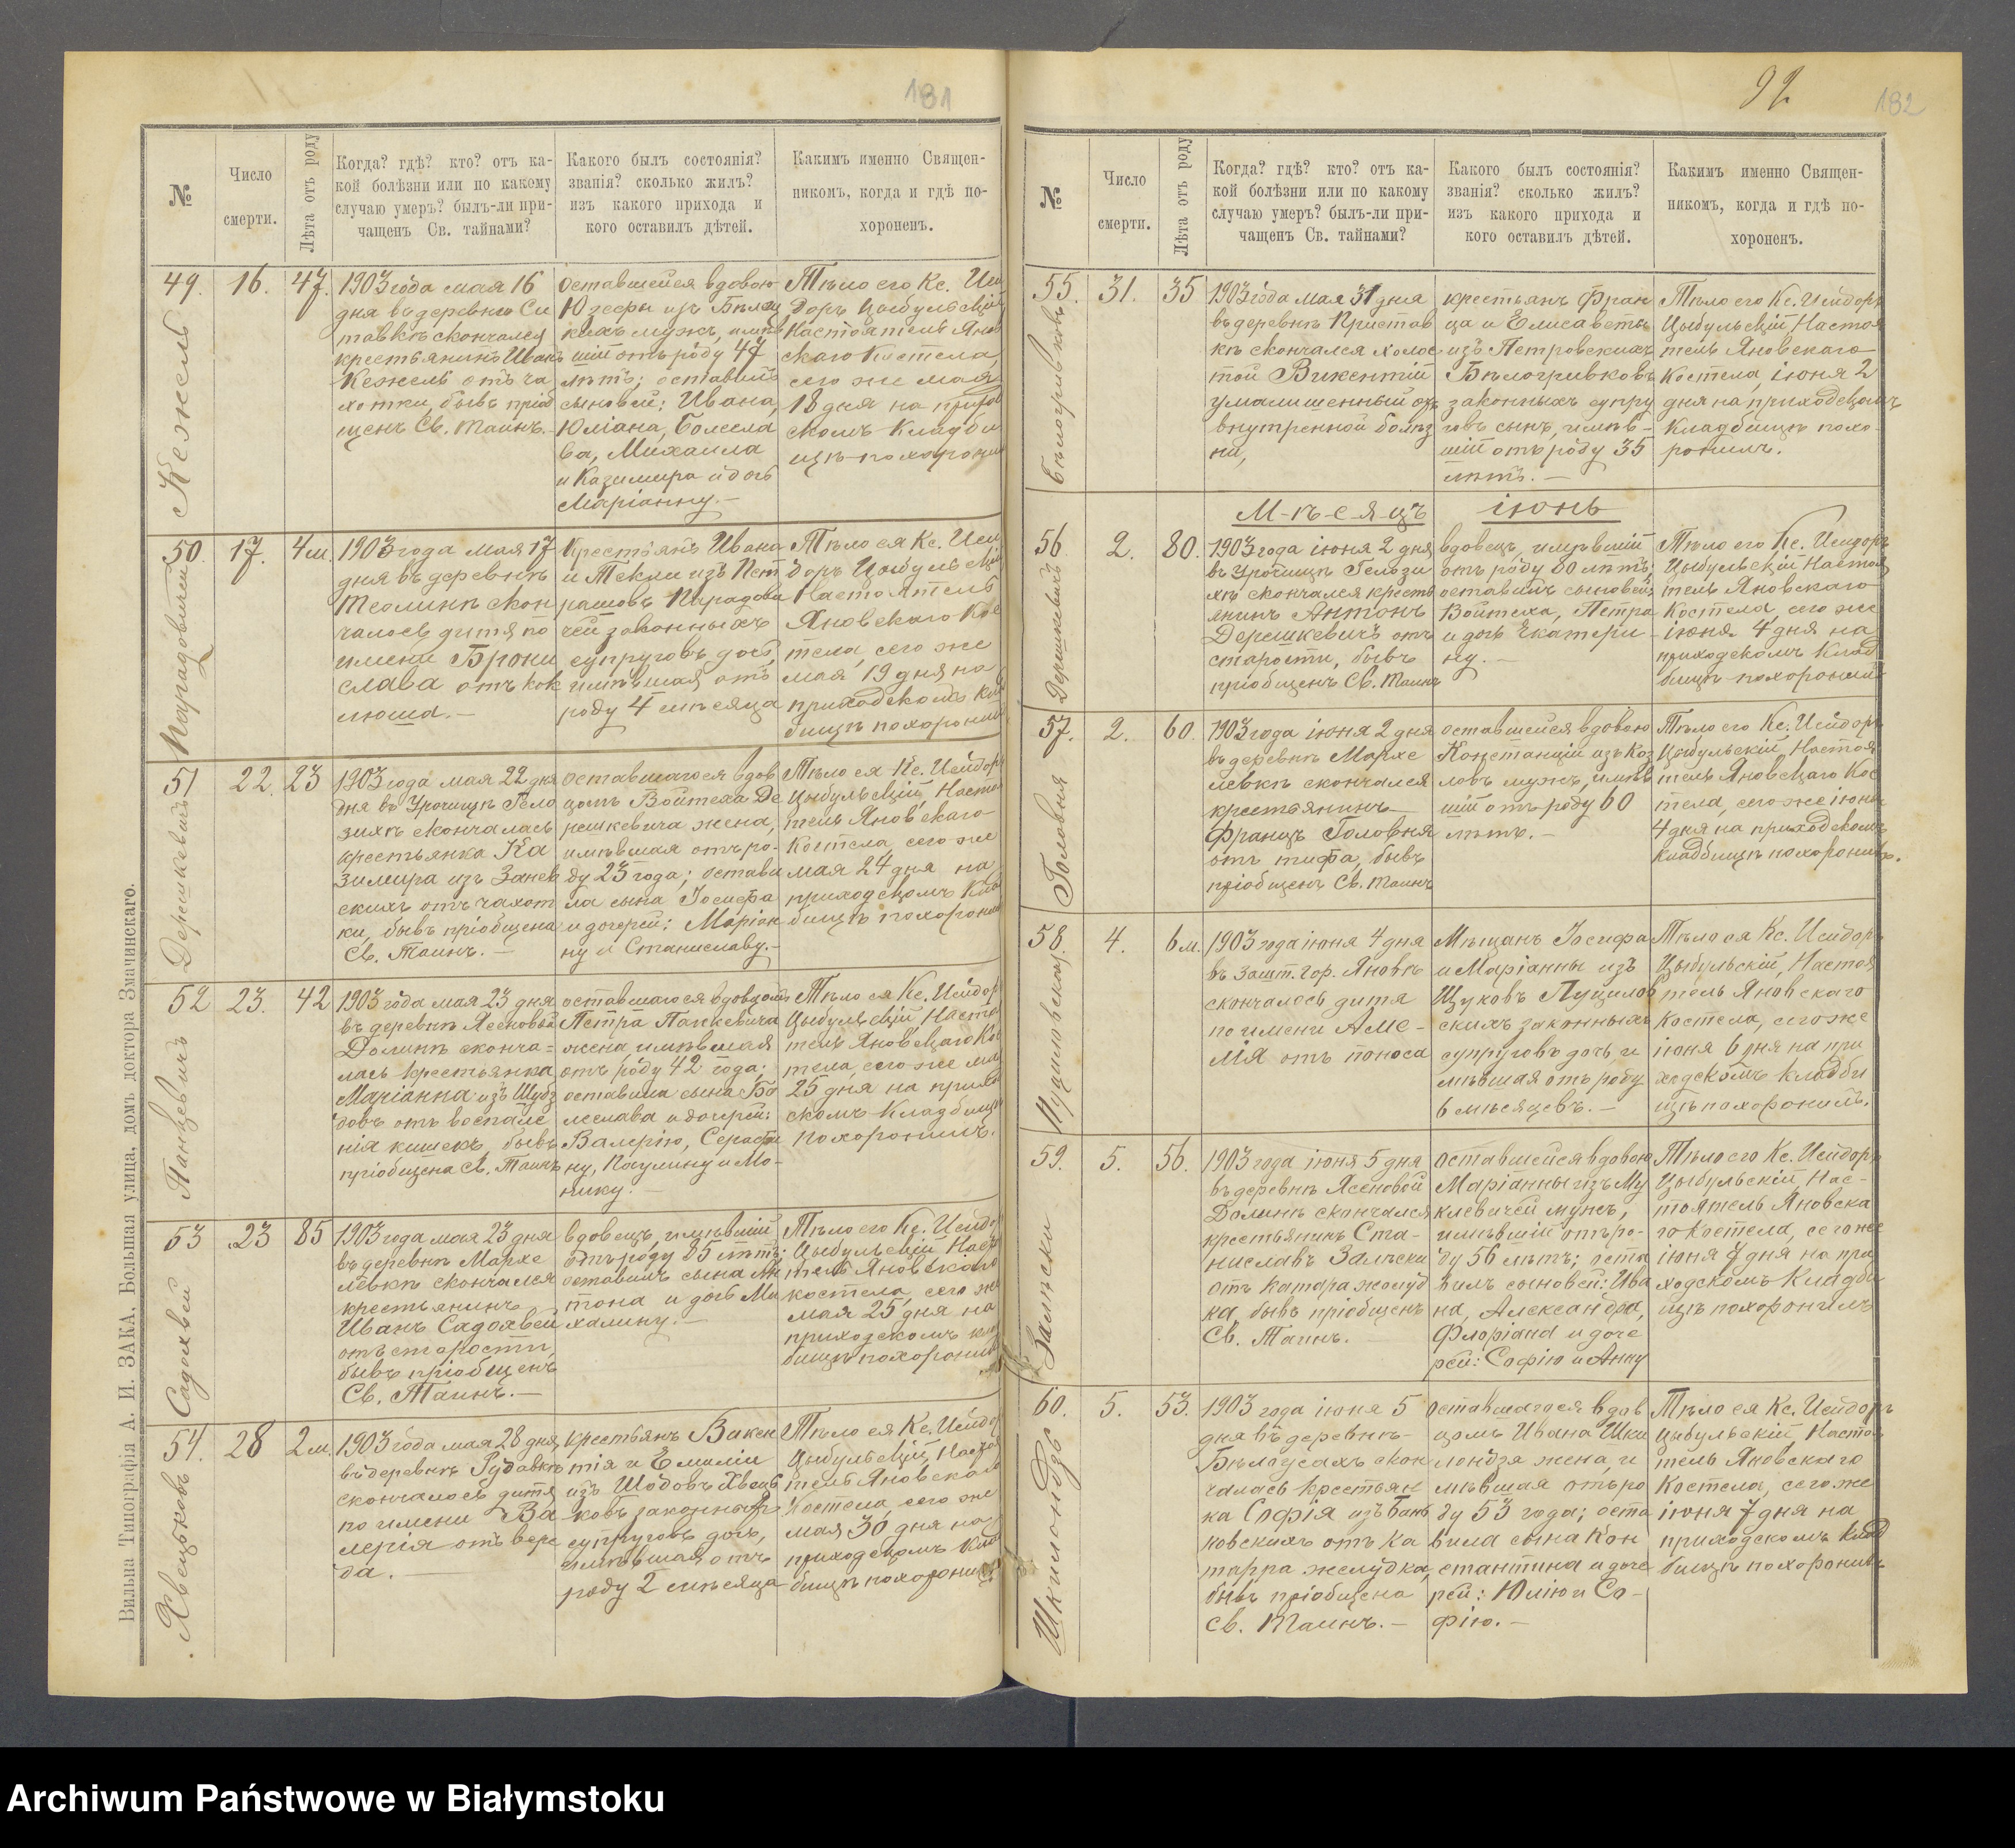 181
№
Число
смерти.
Лѣта отъ роду
Когда? гдѣ? кто? отъ ка-
кой болѣзни или по какому
случаю умеръ? былъ-ли при-
чащенъ Св. тайнами?
Какого былъ состоянія?
званія? сколько жилъ?
изъ какого прихода и
кого оставилъ дѣтей.
Какимъ именно Священ-
никомъ, когда и гдѣ по-
хороненъ.
49.
Кежель
16.
47.
1903 года мая 16
дня въ деревнѣ Си
тавкѣ скончался
крестьянинъ Иванъ
Кежель отъ ча
хотки, бывъ пріоб
щенъ Св. Таинъ.-
оставшейся вдовою
Юзефы изъ
мужъ, имѣв
шій отъ роду 47
лѣтъ; оставилъ
сыновей: Ивана,
Юліана, Болесла
ва, Михаила
и Казимира и дочь
Маріанну.-
Тѣло его Кс. Иси
доръ Цыбульскій
Настоятель Янов
скаго Костела,
сего же мая
18 дня на приход
скомъ кладби
щѣ похоронил
50.
17.
4 м.
1903 года мая 17
дня въ деревнѣ
Теолинѣ скон
чалось дитя по
имени Брони
слава отъ кок
люша.-
Крестьянъ Ивана
и Теклии изъ Пет
рашовъ
чей законныхъ
супруговъ дочь,
имѣвшая отъ
роду 4 мѣсяца
Тѣло ея Кс. Иси
доръ Цыбульскій
Настоятель
Яновскаго Кос
тела, сего же
мая 19 дня на
приходскомъ клад
бищѣ похоронил
51
Дерешкевичъ
22.
23
1903 года мая 22 дня
дня въ Урочищѣ Гело
зихѣ скончалась
крестьянка Ка
зимира изъ Занев
скихъ отъ чахот
ки, бывъ пріобщена
Св. Таинъ.-
оставшагося вдов
цомъ Войтеха Де
решкевича жена,
имѣвшая отъ ро-
ду 23 года; остави
ла сына Іосифа
и дочерей: Маріан
ну и Станиславу.-
Тѣло ея Кс. Исидоръ
Цыбульскій, Настоя
тель Яновскаго
Костела, сего же
мая 24 дня на
приходскомъ клад
бищѣ похоронил
52
Панцевичъ
23.
42
1903 года мая 23 дня
въ деревнѣ Ясеновой
Долинѣ сконча=
лась крестьянка
Маріанна изъ Шубз
довъ отъ воспале
нія кишекъ, бывъ
пріобщена Св. Таинъ
оставшагося вдовцомъ
Петра Панкевича
жена, имѣвшая
отъ роду 42 года;
оставила сына Бо
леслава и дочерей:
Валерію, Серафи
ну, Паулину и Мо-
нику.-
Тѣло ея Кс. Исидор
Цыбульскій, Настоя
тель Яновскаго Ко
стела, сего же мая
25 дня на приход
скомъ Кладбищѣ
похоронилъ.
53
Садохвей
23
85
1903 года мая 23 дня
въ деревнѣ Мархе
левкѣ скончался
крестьянинъ
Иванъ Садохвей
отъ старости,
бывъ пріобщенъ
Св. Таинъ.-
вдовецъ, имѣвшій
отъ роду 85 лѣтъ;
оставилъ сына Ан
тона и дочь Ми
халину.-
Тѣло его Кс. Исидо
Цыбульскій Наст
тель Яновскаго
костела, сего же
мая 25 дня на
приходскомъ клад
бищѣ похоронил
54.
Хвецковъ
28
2 м.
1903 года мая 28 дня
въ деревнѣ Рудавкѣ
скончалось дитя
по имени Ва
лерія отъ вере
да.-
крестьянъ Викен
тія и Емиліи
изъ Шодовъ Хвец
ковъ законныхъ
супруговъ дочь,
имѣвшая отъ
роду 2 мѣсяца
Тѣло ея Кс. Исидо
Цыбульскій, Настоя
тель Яновскаго
Костела, сего же
мая 30 дня на
приходскомъ клад
бищѣ похоронилъ
Вильна Типографія А. И. ЗАКА, Большая улица, домъ доктора Змачинскаго.
92
182
№
Число
смерти.
Лѣта отъ роду
Когда? гдѣ? кто? отъ ка-
кой болѣзни или по какому
случаю умеръ? былъ-ли при-
чащенъ Св. тайнами?
Какого былъ состоянія?
званія? сколько жилъ?
изъ какого прихода и
кого оставилъ дѣтей.
Какимъ именно Священ-
никомъ, когда и гдѣ по-
хороненъ.
55.
Бѣлогривковъ
31.
35
1903 года мая 31 дня
въ деревнѣ Пристав
кѣ скончался холос
той Викентій
умалишенный отъ
внутренной болѣз
ни,
крестьянъ Фран
ца и Елисаветы
изъ Петровскихъ
Бѣлогривковъ
законныхъ супру
говъ сынъ, имѣв-
шій отъ роду 35
лѣтъ.-
Тѣло его Кс. Исидоръ
Цыбульскій Настоя
тель Яновскаго
Костела, іюня 2
дня на приходскомъ
Кладбищѣ похо-
ронилъ.
М-ѣ-с-я-цъ іюнь
56
Дерешкевичъ
2.
80.
1903 года іюня 2 дня
въ Урочищѣ Гелози
хѣ скончался кресть
янинъ Антонъ
Дерешкевичъ отъ
старости, бывъ
пріобщенъ Св. Таинъ
вдовецъ, имѣвшій
отъ роду 80 лѣтъ;
оставилъ сыновей:
Войтеха, Петра
и дочь Екатери-
ну.-
Тѣло его Кс. Исидоръ
Цыбульскій Настоя
тель Яновскаго
Костела, сего же
іюня 4 дня на
приходскомъ клад
бищѣ похоронилъ
57.
Головня
2.
60.
1903 года іюня 2 дня
въ деревнѣ Мархе
левкѣ скончался
крестьянинъ
Францъ Головня
отъ тифа, бывъ
пріобщенъ Св. Таинъ
оставшейся вдовою
Констанціи изъ Коз
ловъ мужъ, имѣв
шій отъ роду 60
лѣтъ.-
Тѣло его Кс. Исидоръ
Цыбульскій, Настоя
тель Яновскаго Кос
тела, сего же іюня
4 дня на приходскомъ
кладбищѣ похоронилъ.
58.
4.
6 м.
1903 года іюня 4 дня
въ зашт. гор. Яновѣ
скончалось дитя
по имени Аме-
лія отъ поноса
Мѣщанъ Іосифа
и Маріанны изъ
Щуковъ Луцилов
скихъ законныхъ
супруговъ дочь и
мѣвшая отъ роду
6 мѣсяцевъ.-
Тѣло ея Кс. Исидоръ
Цыбульскій, Настоя
тель Яновскаго
Костела, сего же
іюня 6 дня на при
ходскомъ кладби
щѣ похоронилъ.
59.
Залѣски
5.
56.
1903 года іюня 5 дня
въ деревнѣ Ясеновой
Долинѣ скончался
крестьянинъ Ста-
ниславъ Залѣски
отъ катара желуд
ка, бывъ пріобщенъ
Св. Таинъ.
оставшейся вдовою
Маріанны изъ Му
клевичей мужъ,
имѣвшій отъ ро-
ду 56 лѣтъ; оста
вилъ сыновей: Ива
на, Александра,
Флоріана и доче
рей: Софію и Анну
Тѣло его Кс. Исидоръ
Цыбульскій, Нас-
тоятель Яновска
го Костела, сего же
іюня 7 дня на при
ходскомъ Кладби
щѣ похоронилъ
60.
Шкилондзь
5.
53.
1903 года іюня 5
дня въ деревнѣ-
Бѣлоусахъ скон
чалась крестьян
ка Софія изъ Бань
ковскихъ отъ ка
тарра желудка,
бывъ пріобщена
Св. Таинъ.-
оставшагося вдов
цомъ Ивана Шки
лондзя жена, и
мѣвшая отъ ро
ду 53 года; оста
вила сына Кон
стантина и доче
рей: Юлію и Со-
фію.-
Тѣло ея Кс. Исидоръ
Цыбульскій, Настоя
тель Яновскаго
Костела, сего же
іюня 7 дня на
приходскомъ клад
бищѣ похоронилъ
Archiwum Państwowe w Białymstoku